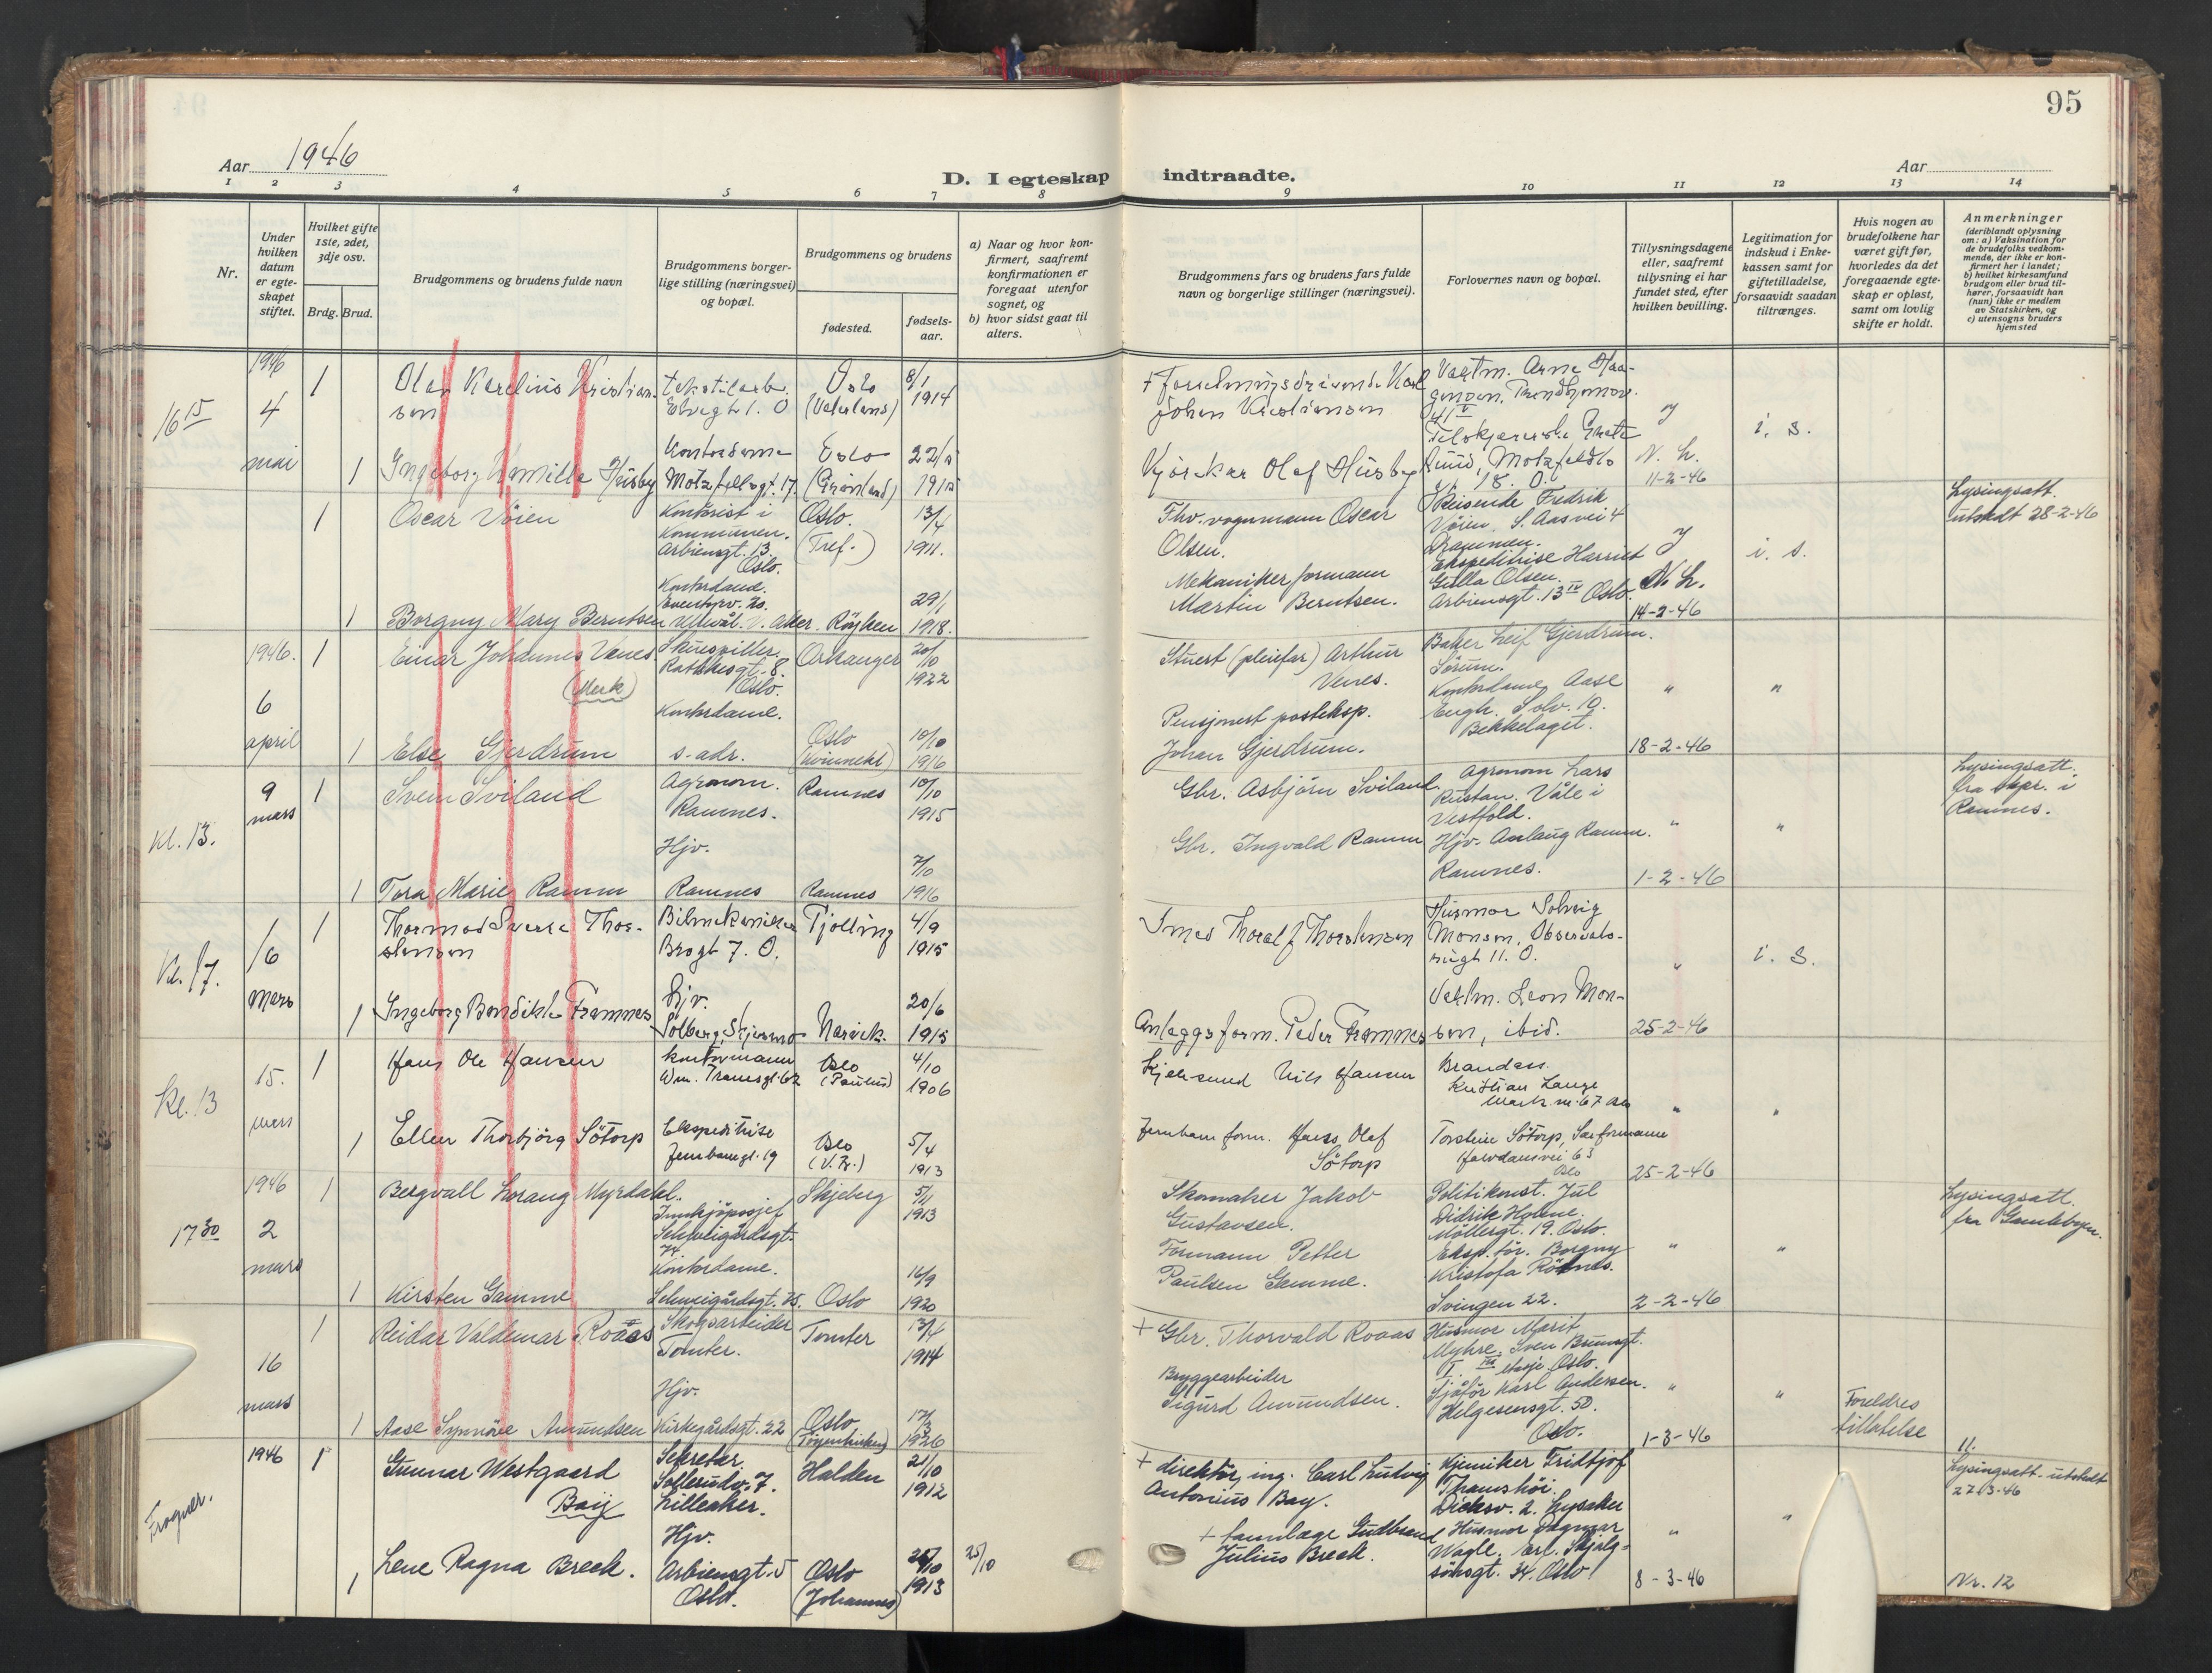 95
Aar 1946
D. I egteskap indtraadte.
Aar
1 2 3 4 5 6 7 8 9 10 11 12 13 14
Nr.
Under hvilken datum er egteskapet stiftet.
Hvilket gifte 1ste, 2det, 3dje osv.
Brdg. Brud.
Brudgommens og brudens fulde navn
Brudgommens borgerlige stilling (næringsvei) og bopæl.
Brudgommens og brudens
fødested.
fødselsaar.
a) Naar og hvor konfirmert, saafremt konfirmationen er foregaat utenfor sognet, og
b) hvor sidst gaat til alters.
Brudgommens fars og brudens fars fulde navn og borgerlige stillinger (næringsvei).
Forlovernes navn og bopæl.
Tillysningsdagene eller, saafremt tillysning ei har fundet sted, efter hvilken bevilling.
Legitimation for indskud i Enkekassen samt for giftetilladelse, forsaavidt saadan tiltrænges.
Hvis nogen av brudefolkene har været gift før, hvorledes da det foregaaende egteskap er opløst, samt om lovlig skifte er holdt.
Anmerkninger
(deriblandt oplysning om: a) Vaksination for de brudefolks vedkommende, der ikke er konfirmert her i landet;
b) hvilket kirkesamfund brudgom eller brud tilhører, forsaavidt han (hun) ikke er medlem av Statskirken, og
c) utensogns bruders hjemsted
16 15
1946
4
mai
1
Olav Karelius Kristiansen
Oslo
8/1
1914
+
Johan Kristiansen
Vaktm. Arne Haagensen
i. s.
1
Ingeborg Kamilla Husby
Kontordame
Motzfeltsgt. 17.
Oslo
(Grønland)
22/5
1915
Olaf Husby
18. O.
N. L.
11-2-46
1
Oscar Vöien
Kontorist i
Kommunen.
Arbiensgt. 13
Oslo.
Oslo.
(Tref.)
13/4
1911.
Fhv. vognmann Oscar
Olsen.
Reisende Fredrik
Vöien. S. Aasvei 4
Drammen.
i. s.
Lysingsatt.
utstedt 28-2-46
1
Borgny Mary Berntsen
Kontordame.
Eventyrv. 20.
Ullevål. V. Aker.
Röyken
29/1
1918.
Mekaniker formann
Martin Berntsen.
Ekspeditrise Harriet
Gulla Olsen.
Arbiensgt. 13 IV Oslo.
N. L.
14-2-46
1946.
6
april
1
Einar Johannes Venes
(Merk)
Rathkesgt. 8.
Oslo.
Orkanger
20/10
1922
Stuert (pleiefar) Arthur
Venes.
Baker Leif Gjerdrum.
Sörum.
"
"
1
Else Gjerdrum
Kontordame.
s. adr.
Oslo
10/10
1916
Pensjonert posteksp.
Johan Gjerdrum.
Kontordame Aase
Engh. Solv. 10.
Bekkelaget.
18-2-46
kl. 13.
9
mars
1
Svein Sviland
Agronom.
Ramnes.
Ramnes
10/10
1915
Gbr. Asbjörn Sviland.
Agronom Lars
Rustan. Våle i
Vestfold.
"
"
Lysingsatt.
fra
Ramnes.
1
Tora Marie Ramm
Hjv.
Ramnes
Ramnes
7/10
1916
Gbr. Ingvald Ramm
Hjv. Aslaug Ramm.
Ramnes.
1-2-46
Kl. 17.
16
mars
1
Thormod Sverre Thorstensen
Bilmekaniker
Brogt 7. O.
Tjölling
4/9
1915
Thoralf Thorstensen
Husmor Solveig
Monsen, Observatoriegt 11. O.
"
i. s.
1
Ingeborg Bendikte Framnes
Hjv.
Solberg, Skjerstad
Narvik.
20/6
1915
Anleggsform. Peder Framnes
Vaktm. Leon Monsen, ibid.
25-2-46
kl. 13
15.
mars
1
Hans Ole Hansen
Wm. Tranesgt. 62
Oslo
(Paulus)
4/10
1906
Nils Hansen
Kristian Lange
"
"
1
Ellen Thorbjörg Sötorp
Ekspeditrise
Jernbanegt. 19
Oslo
5/4
1913
Jernbaneform. Hans Olaf
Sötorp
Torstein Sötorp,
Oslo
25-2-46
17 30
1946
2
mars
1
Bergvall Lorang Myrdahl.
Innkjöpssjef
Schweigårdsgt.
Skjeberg
5/11
1913
Skomaker Jakob
Gustavsen.
Politikonst. Jul
Didrik Holene.
Möllergt. 19. Oslo.
"
"
Lysingsatt.
fra Gamlebyen.
1
Kirsten Gamme
Kontordame.
Schweigårdsgt. 75.
Oslo
16/9
1920
Formann Petter
Paulsen Gamme.
Eksp. för. Borgny
Kristofa Rötnes.
Svingen 22.
2-2-46
16
mars
1
Reidar Valdemar Roaas
Skogsarbeider
Tomter.
Tomter
13/4
1914
+ Gbr. Thorvald Roaas
Husmor Marit
Myhre. Sven Brunsgt.
1. III etasje Oslo.
"
"
1
Aase Synnöve Amundsen
Hjv.
Kirkegårdsgt. 22
Oslo
(Töyenkirken)
17/3
1926
Bryggearbeider
Sigurd Amundsen.
Sjåför Karl Andersen.
Helgesensgt. 50.
Oslo.
1-3-46
Foreldres
tillatelse
Frogner.
1946
1
Gunnar Westgaard
Baij
Sekretær.
Sollerudv. 7.
Lilleaker.
Halden
21/10
1912
+ direktör, ing. Carl Ludvig
Antonius Bay.
Kjemiker Fridtjof
Thamshöi.
Dicksv. 2. Lysaker
"
"
11.
Lysingsatt. utstedt
27/3-46
1
Lene Ragna Breek.
Hjv.
Arbiensgt. 5
Oslo.
Oslo
(Johannes)
25/10
1913
25/10
+ tannlæge Gudbrand
Julius Breek.
Husmor Dagmar
Wagle. Erl. Skjalgsönsgt. 34. Oslo
8-3-46
Nr. 12